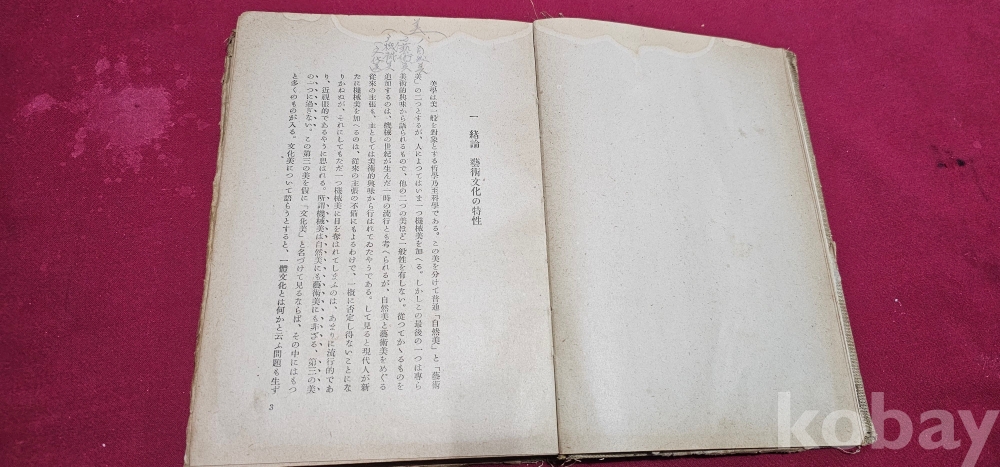 美
自然美
藝術美
機械美
文化美
一　緒論　藝術文化の特性
美學は美一般を對象とする哲學乃至科學である。この美を分けて普通「自然美」と「藝術
美」の二つとするが、人によつてはいま一つ機械美を加へる。しかしこの最後の一つは專ら
美術的興味から語られるもので、他の二つの美ほど一般性を有しない。從つてかゝるものを
追加するのは、機械の世紀が生んだ一時の流行とも考へられるが、自然美と藝術美をめぐる
從來の主張も、主としては美術的興味から行はれてゐたやうである。して見ると現代人が新
たに機械美を加へるのは、從來の主張の不備にもよるわけで、一概に否定し得ないことにな
りかねぬが、それにしてもただ一つ機械美に目を奪はれてしまふのは、あまりに流行的であ
り、近視眼的であるやうに思はれる。所謂機械美は自然美にも藝術美にも非ざる、第三の美
の一つに過ぎない。この第三の美を假に「文化美」と名づけて見るならば、その中にはもつ
と多くのものが入る。文化美について語らうとすると、一體文化とは何かと云ふ問題も生ず
3
kobay